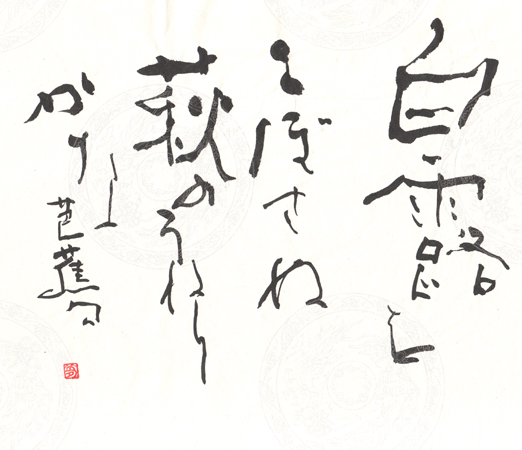 白露を
こぼさぬ
萩のうねり
かな
芭蕉句